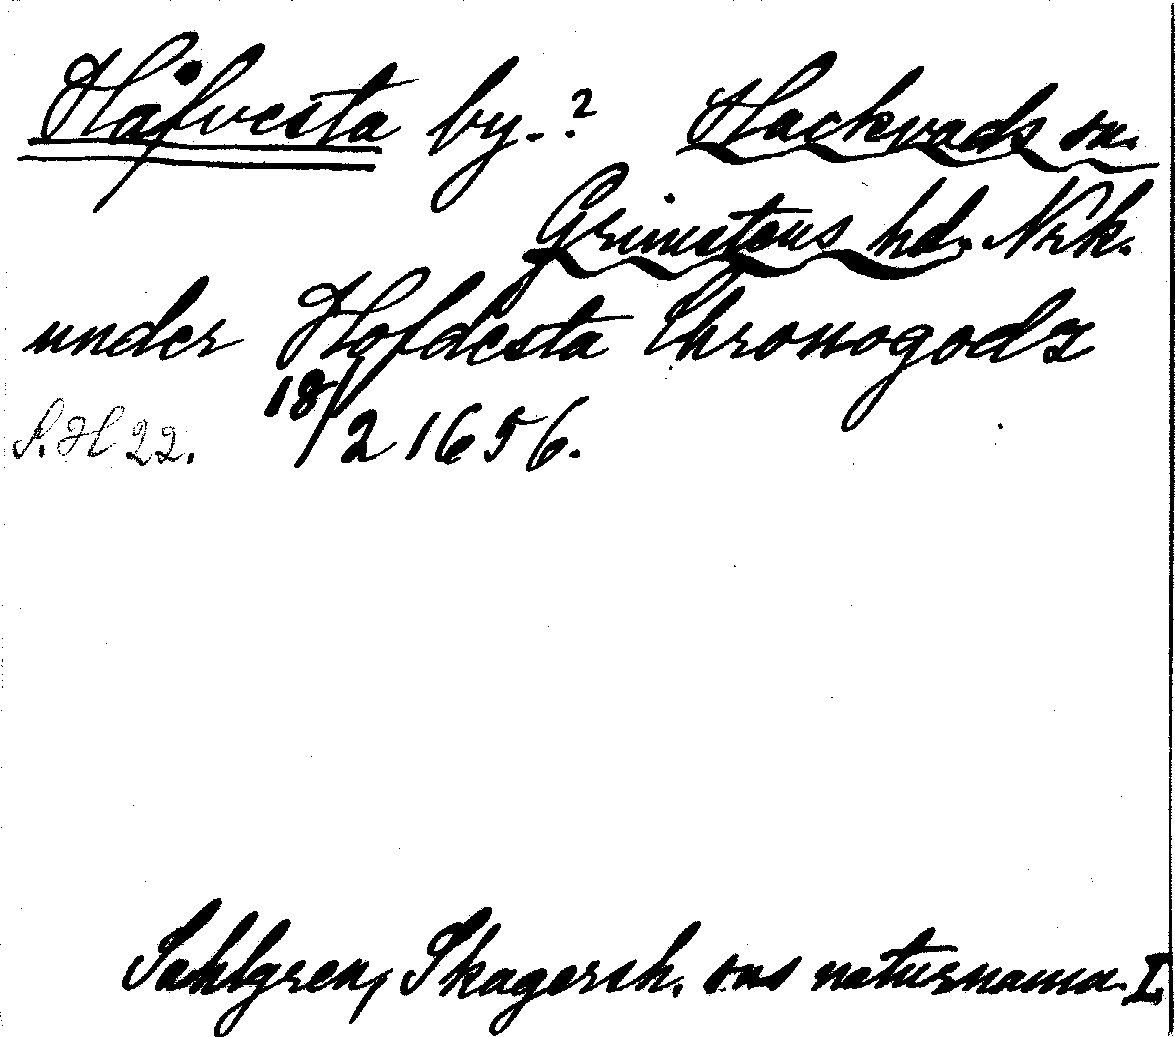 Håfvesta by.? Hackvads sn.
Grimstens hd. Nrk.
under Hofdesta Chronogodz
S. H 22. 18/2 1656.
Sahlgren, Skagersh. sns naturnamn. I.